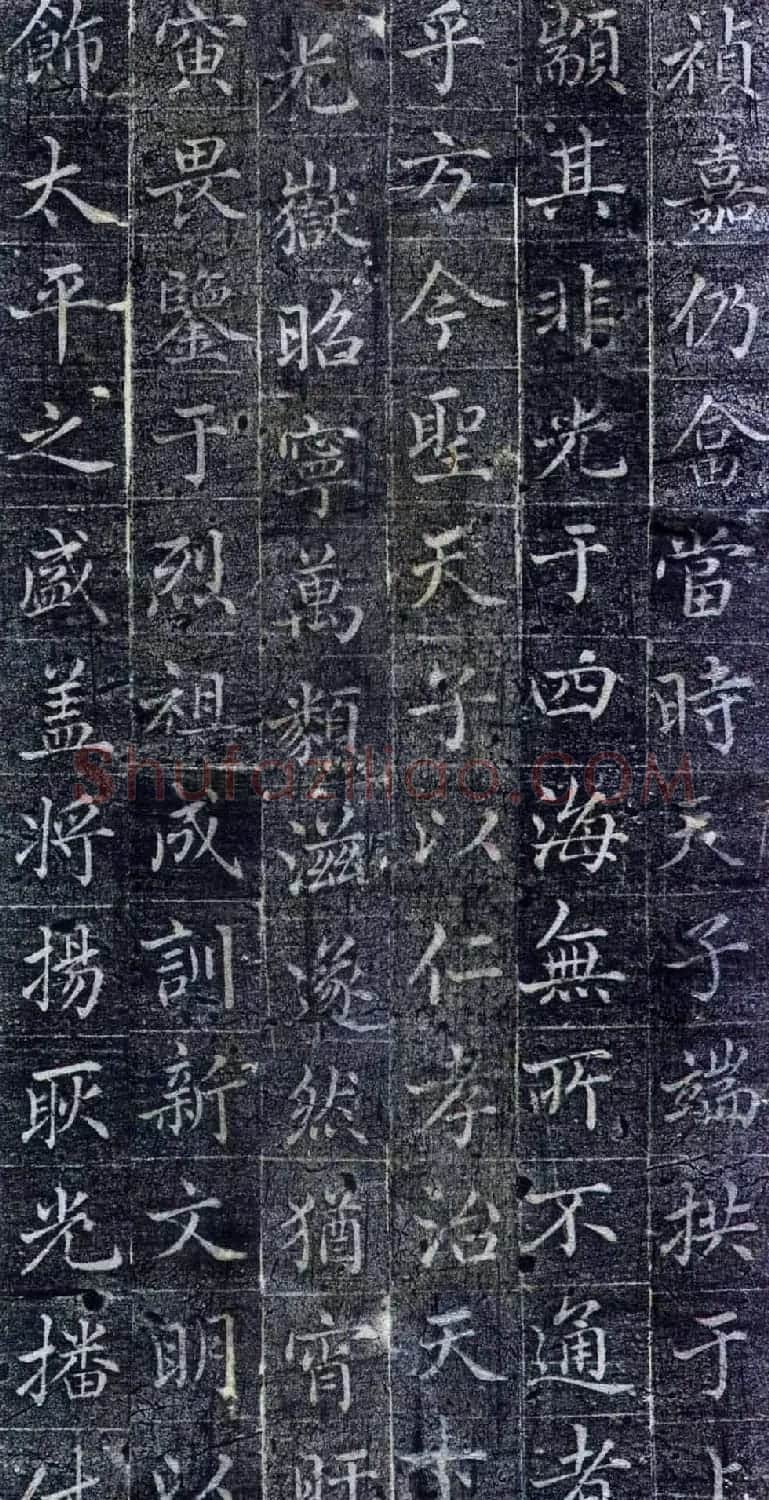 禎嘉仍畣當時天子端拱于上
顯其非光于四海無所不通者
乎方今聖天子以仁孝治天
光嶽昭寧萬類滋遂然猶宵旰
寅畏鑒于烈祖成訓新文明以
飾太平之盛盖將揚耿光播
Shufaziliao.COM